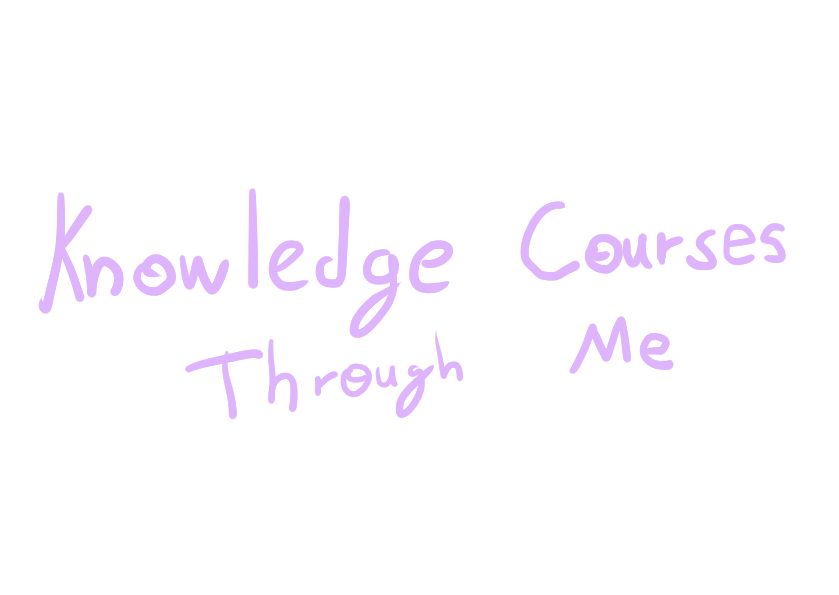 Knowledge Courses
Through Me